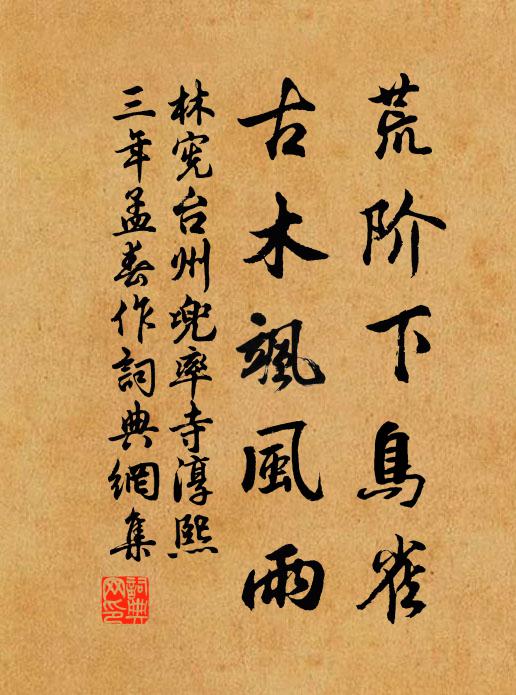 荒阶下鳥雀
古木颯風雨
林宪台州兜率寺淳熙
三年孟春作詞典網集
詞典网印